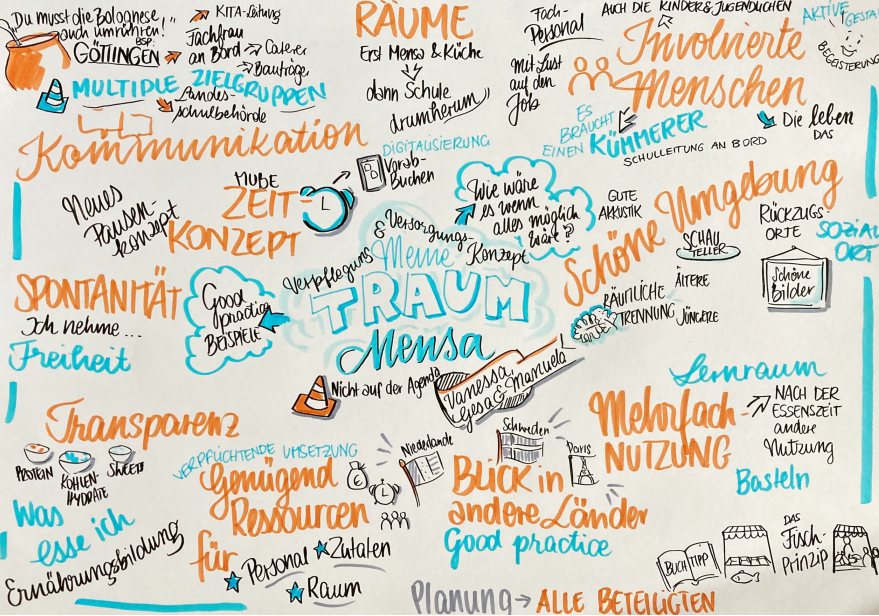 "Du musst die Bolognese
auch umrühren!"
BSP.
GÖTTINGEN
KITA-Leitung
Fachfrau
an Bord
Caterer
Bauträger
MULTIPLE ZIELGRUPPEN
Landes-
schulbehörde
Kommunikation
RÄUME
Erst Mensa & Küche
dann Schule
drumherum
Fach-
Personal
mit Lust
auf den
Job
AUCH DIE KINDER & JUGENDLICHEN
Involvierte
Menschen
AKTIVE
BEGEISTERUNG
ES
BRAUCHT
EINEN KÜMMERER
SCHULLEITUNG AN BORD
Die leben
DAS
DIGITALISIERUNG
Vorab-
Buchen
Neues
Pausen-
konzept
MUBE
ZEIT-
KONZEPT
Wie wäre
es wenn
alles möglich
wäre?
Verpflegungs- & Versorgungs-
Konzept
Meine
TRAUM
Mensa
GUTE
AKKUSTIK
Schöne Umgebung
RÜCKZUGS-
ORTE
SOZIAL
ORT
SCHAU
TELLER
Schöne
Bilder
RÄUMLICHE
TRENNUNG
ÄLTERE
JÜNGERE
SPONTANITÄT
Ich nehme...
Freiheit
Good
practice
BEISPIELE
Nicht auf der Agenda
Vanessa,
Gesa & Manuela
Transparenz
PROTEIN
KOHLEN-
HYDRATE
SWEETS
Was
esse ich
Ernährungsbildung
VERPFLICHTENDE UMSETZUNG
Genügend
Ressourcen
für
Personal
Zutaten
Raum
Niederlande
Schweden
Paris
Blick in
andere Länder
Good practice
Lernraum
Mehrfach-
NUTZUNG
NACH DER
ESSENSZEIT
andere
Nutzung
Basteln
BUCH TIPP
DAS
Fisch-
Prinzip
Planung → ALLE BETEILIGTEN